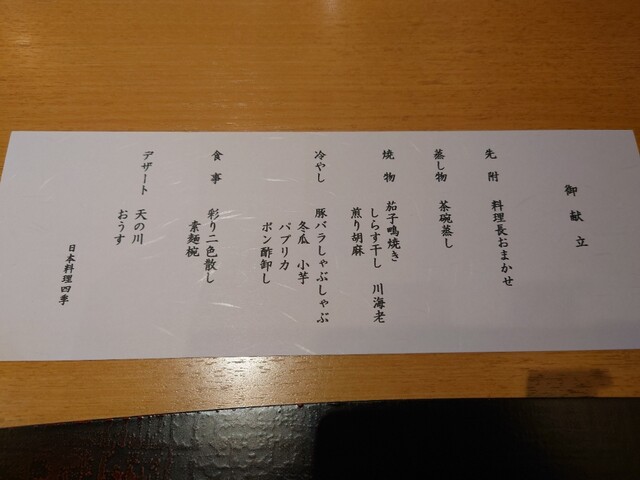 御献立
先附 料理長おまかせ
蒸し物 茶碗蒸し
焼物 茄子鴫焼き
しらす干し 川海老
煎り胡麻
冷やし 豚バラしゃぶしゃぶ
冬瓜 小芋
パプリカ
ポン酢卸し
食事 彩り二色散し
素麺椀
デザート 天の川
おうす
日本料理四季